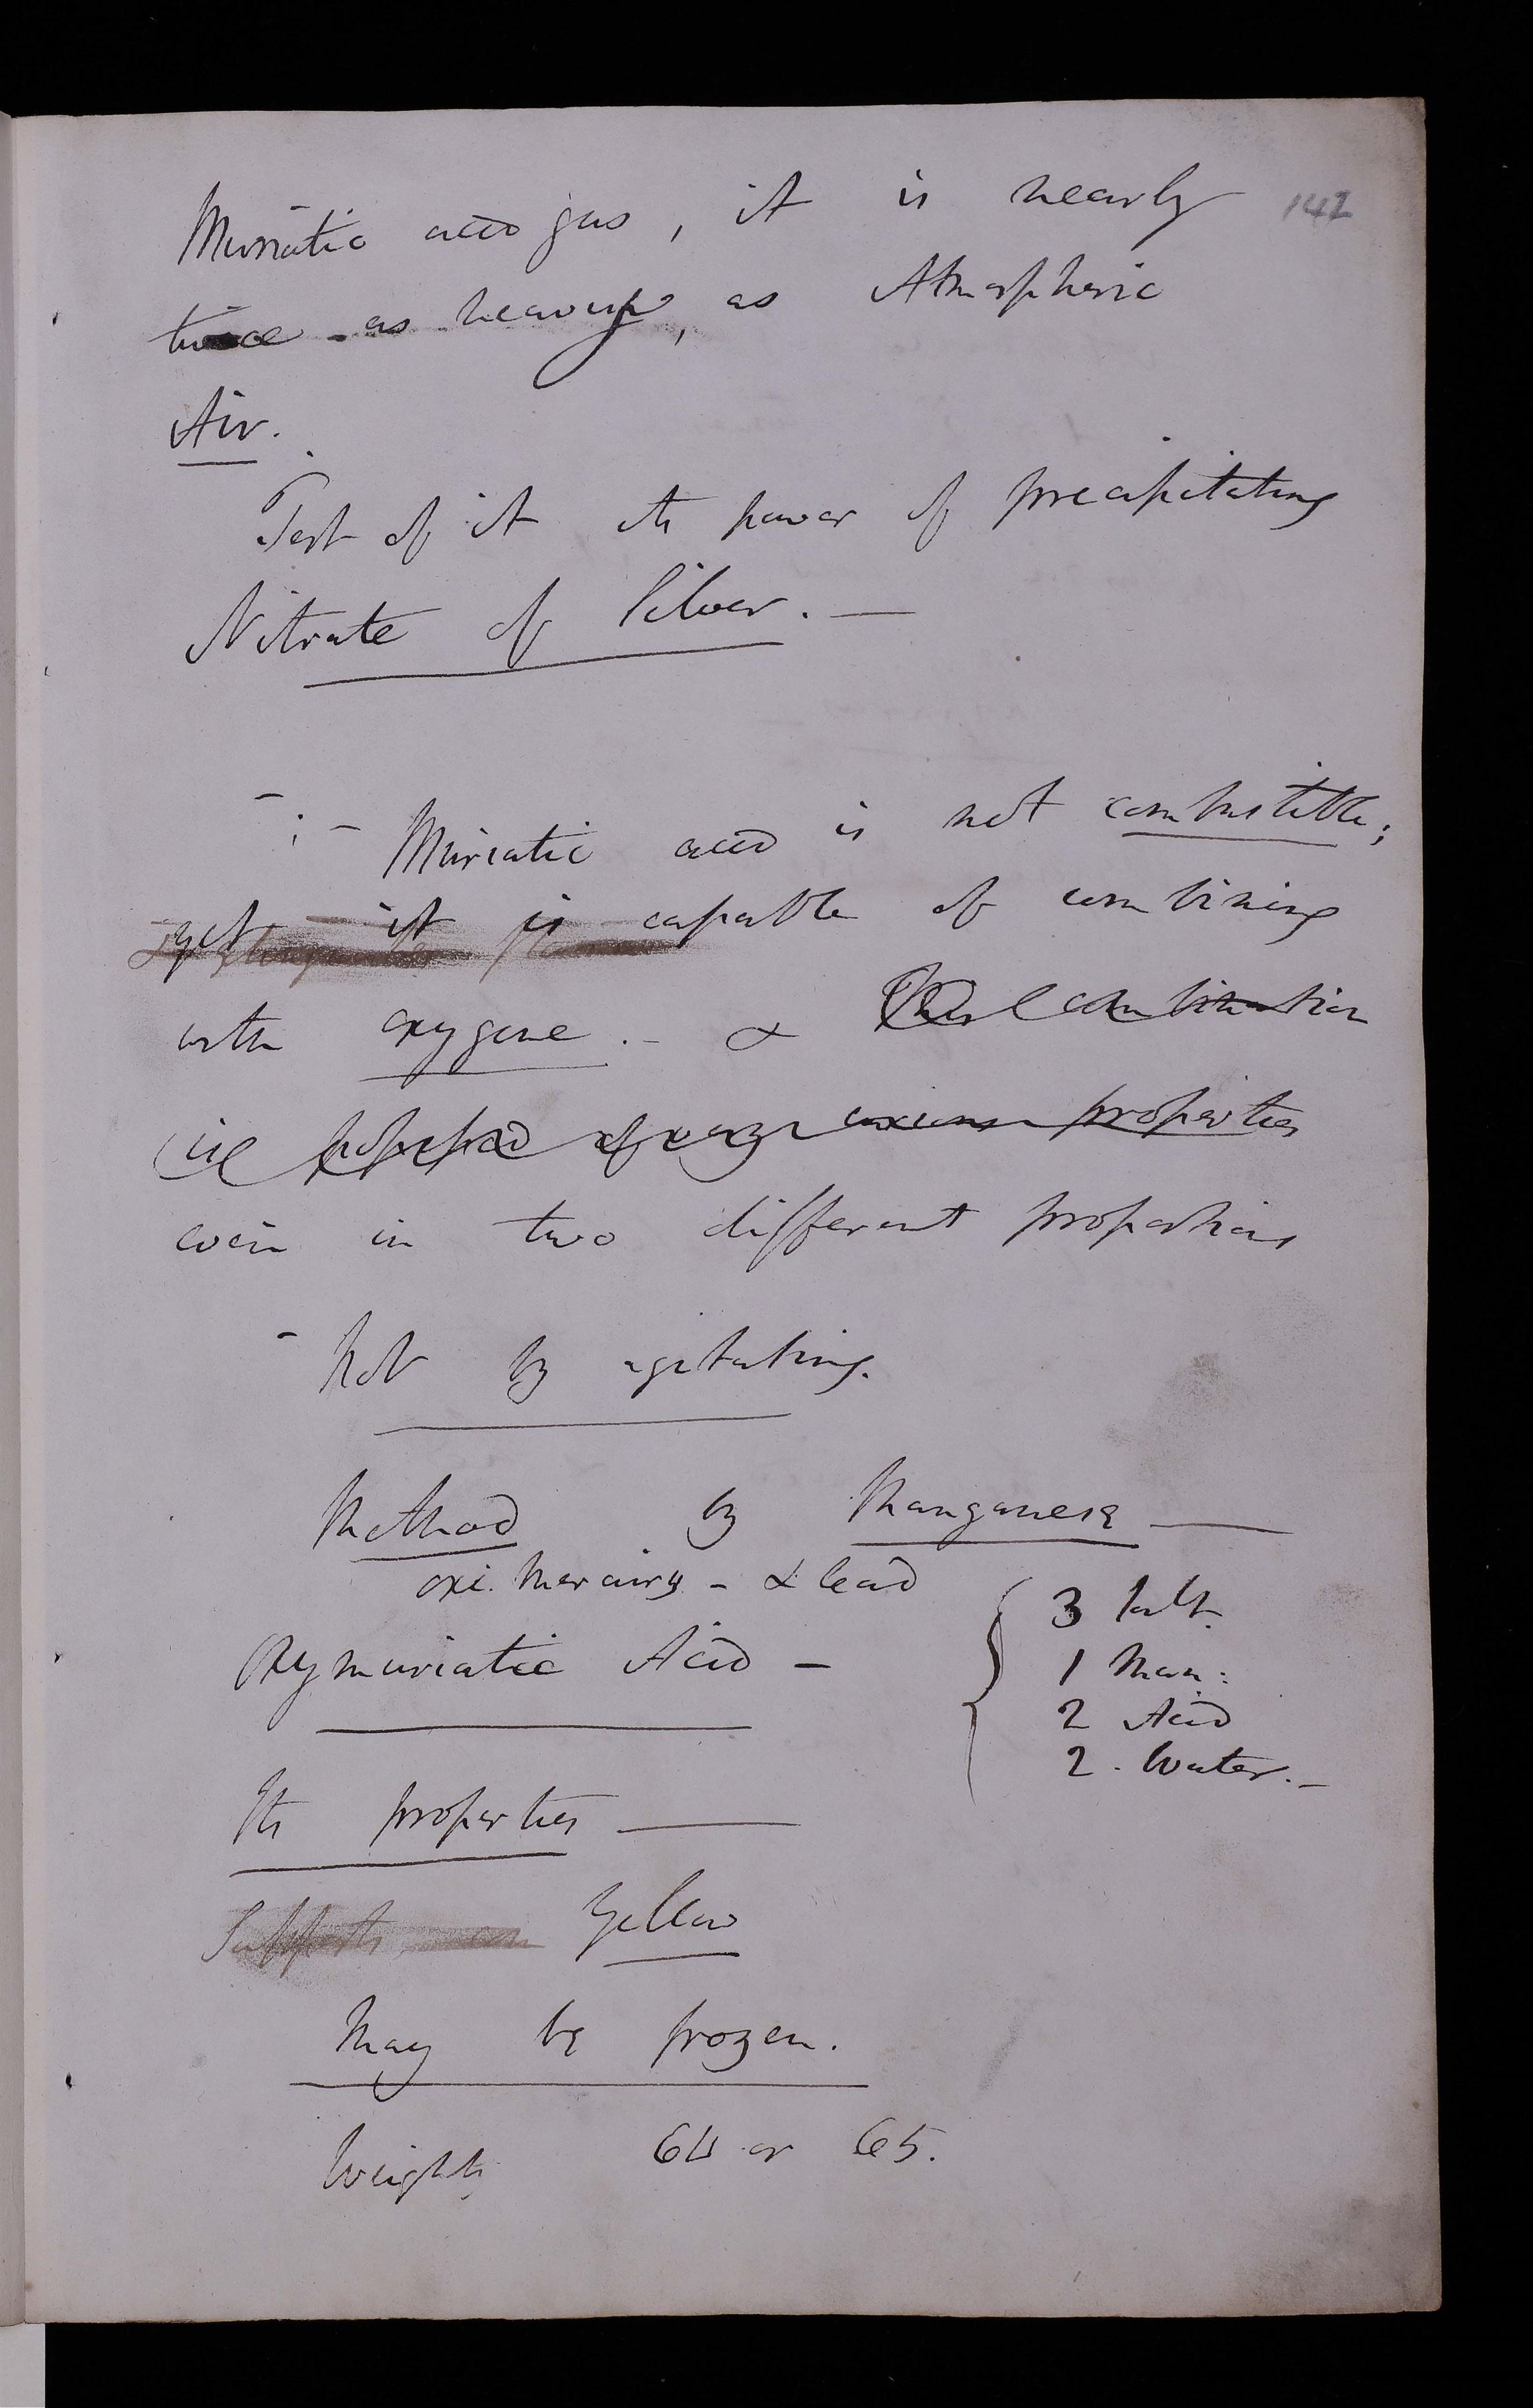 142
Muriatic acid gas, it is nearly
twice as heavy, as Atmospheric
Air.
Test of it its power of precipitating
Nitrate of Silver. —
Muriatic acid is not combustible;
yet it is capable of combining
with oxygene. - & This combination
is possessed of very curious properties
even in two different proportions
- Not by agitating.
Method by Manganese —
oxi. Mercury - & lead
Oxymuriatic Acid -
{ 3 Salt.
1 Man:
2 Acid
2. Water. -
Its properties —
Supports Yellow
May be frozen.
Weighs 64 or 65.